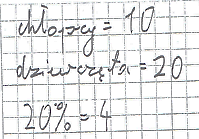 chłopcy = 10
dziewczęta = 20
20% = 4